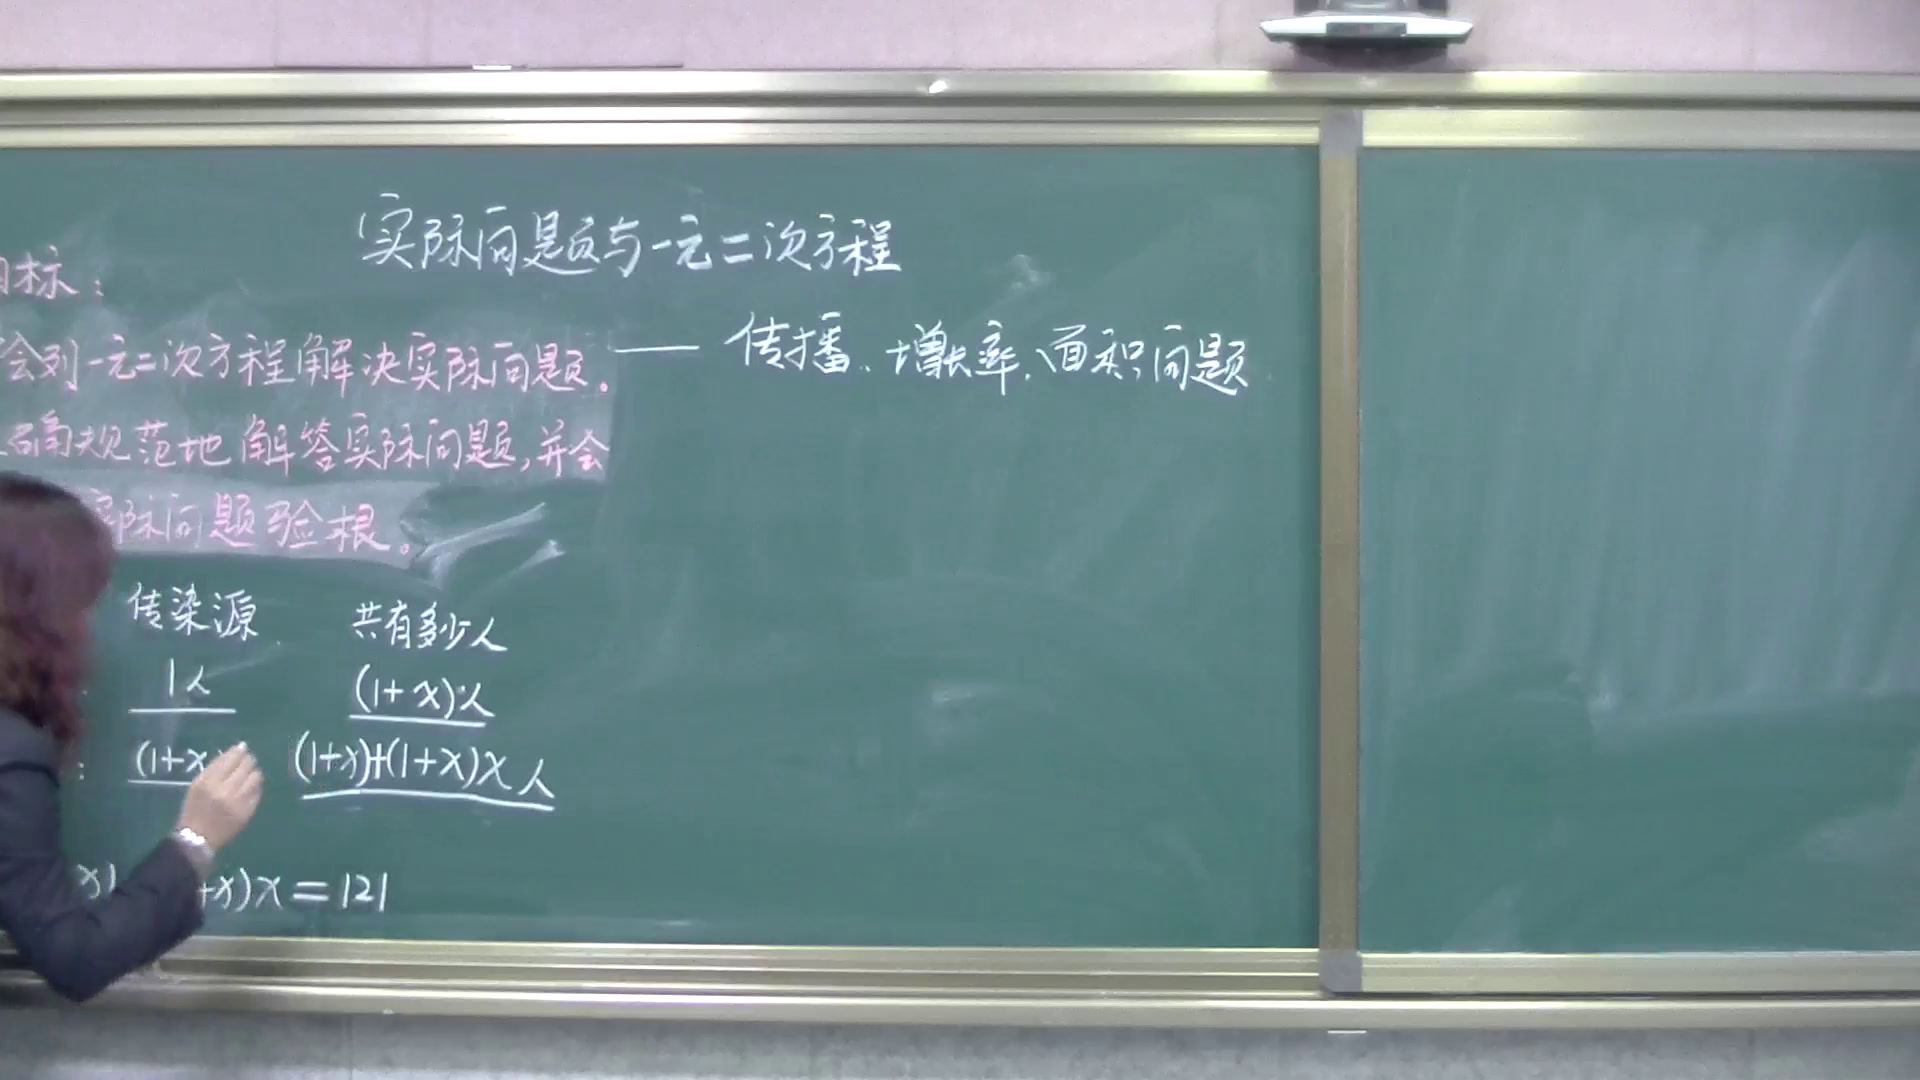 实际问题与一元二次方程
—— 传播、增长率、面积问题
目标：
会列一元二次方程解决实际问题。
确规范地解答实际问题,并会
实际问题验根。
传染源 共有多少人
1人 (1+x)人
: (1+x (1+x)+(1+x)x人
x) +x)x=121